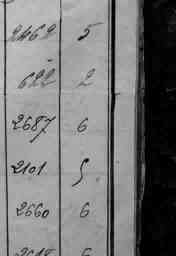 2462 5
622 2
2687 6
2101 5
2660 6